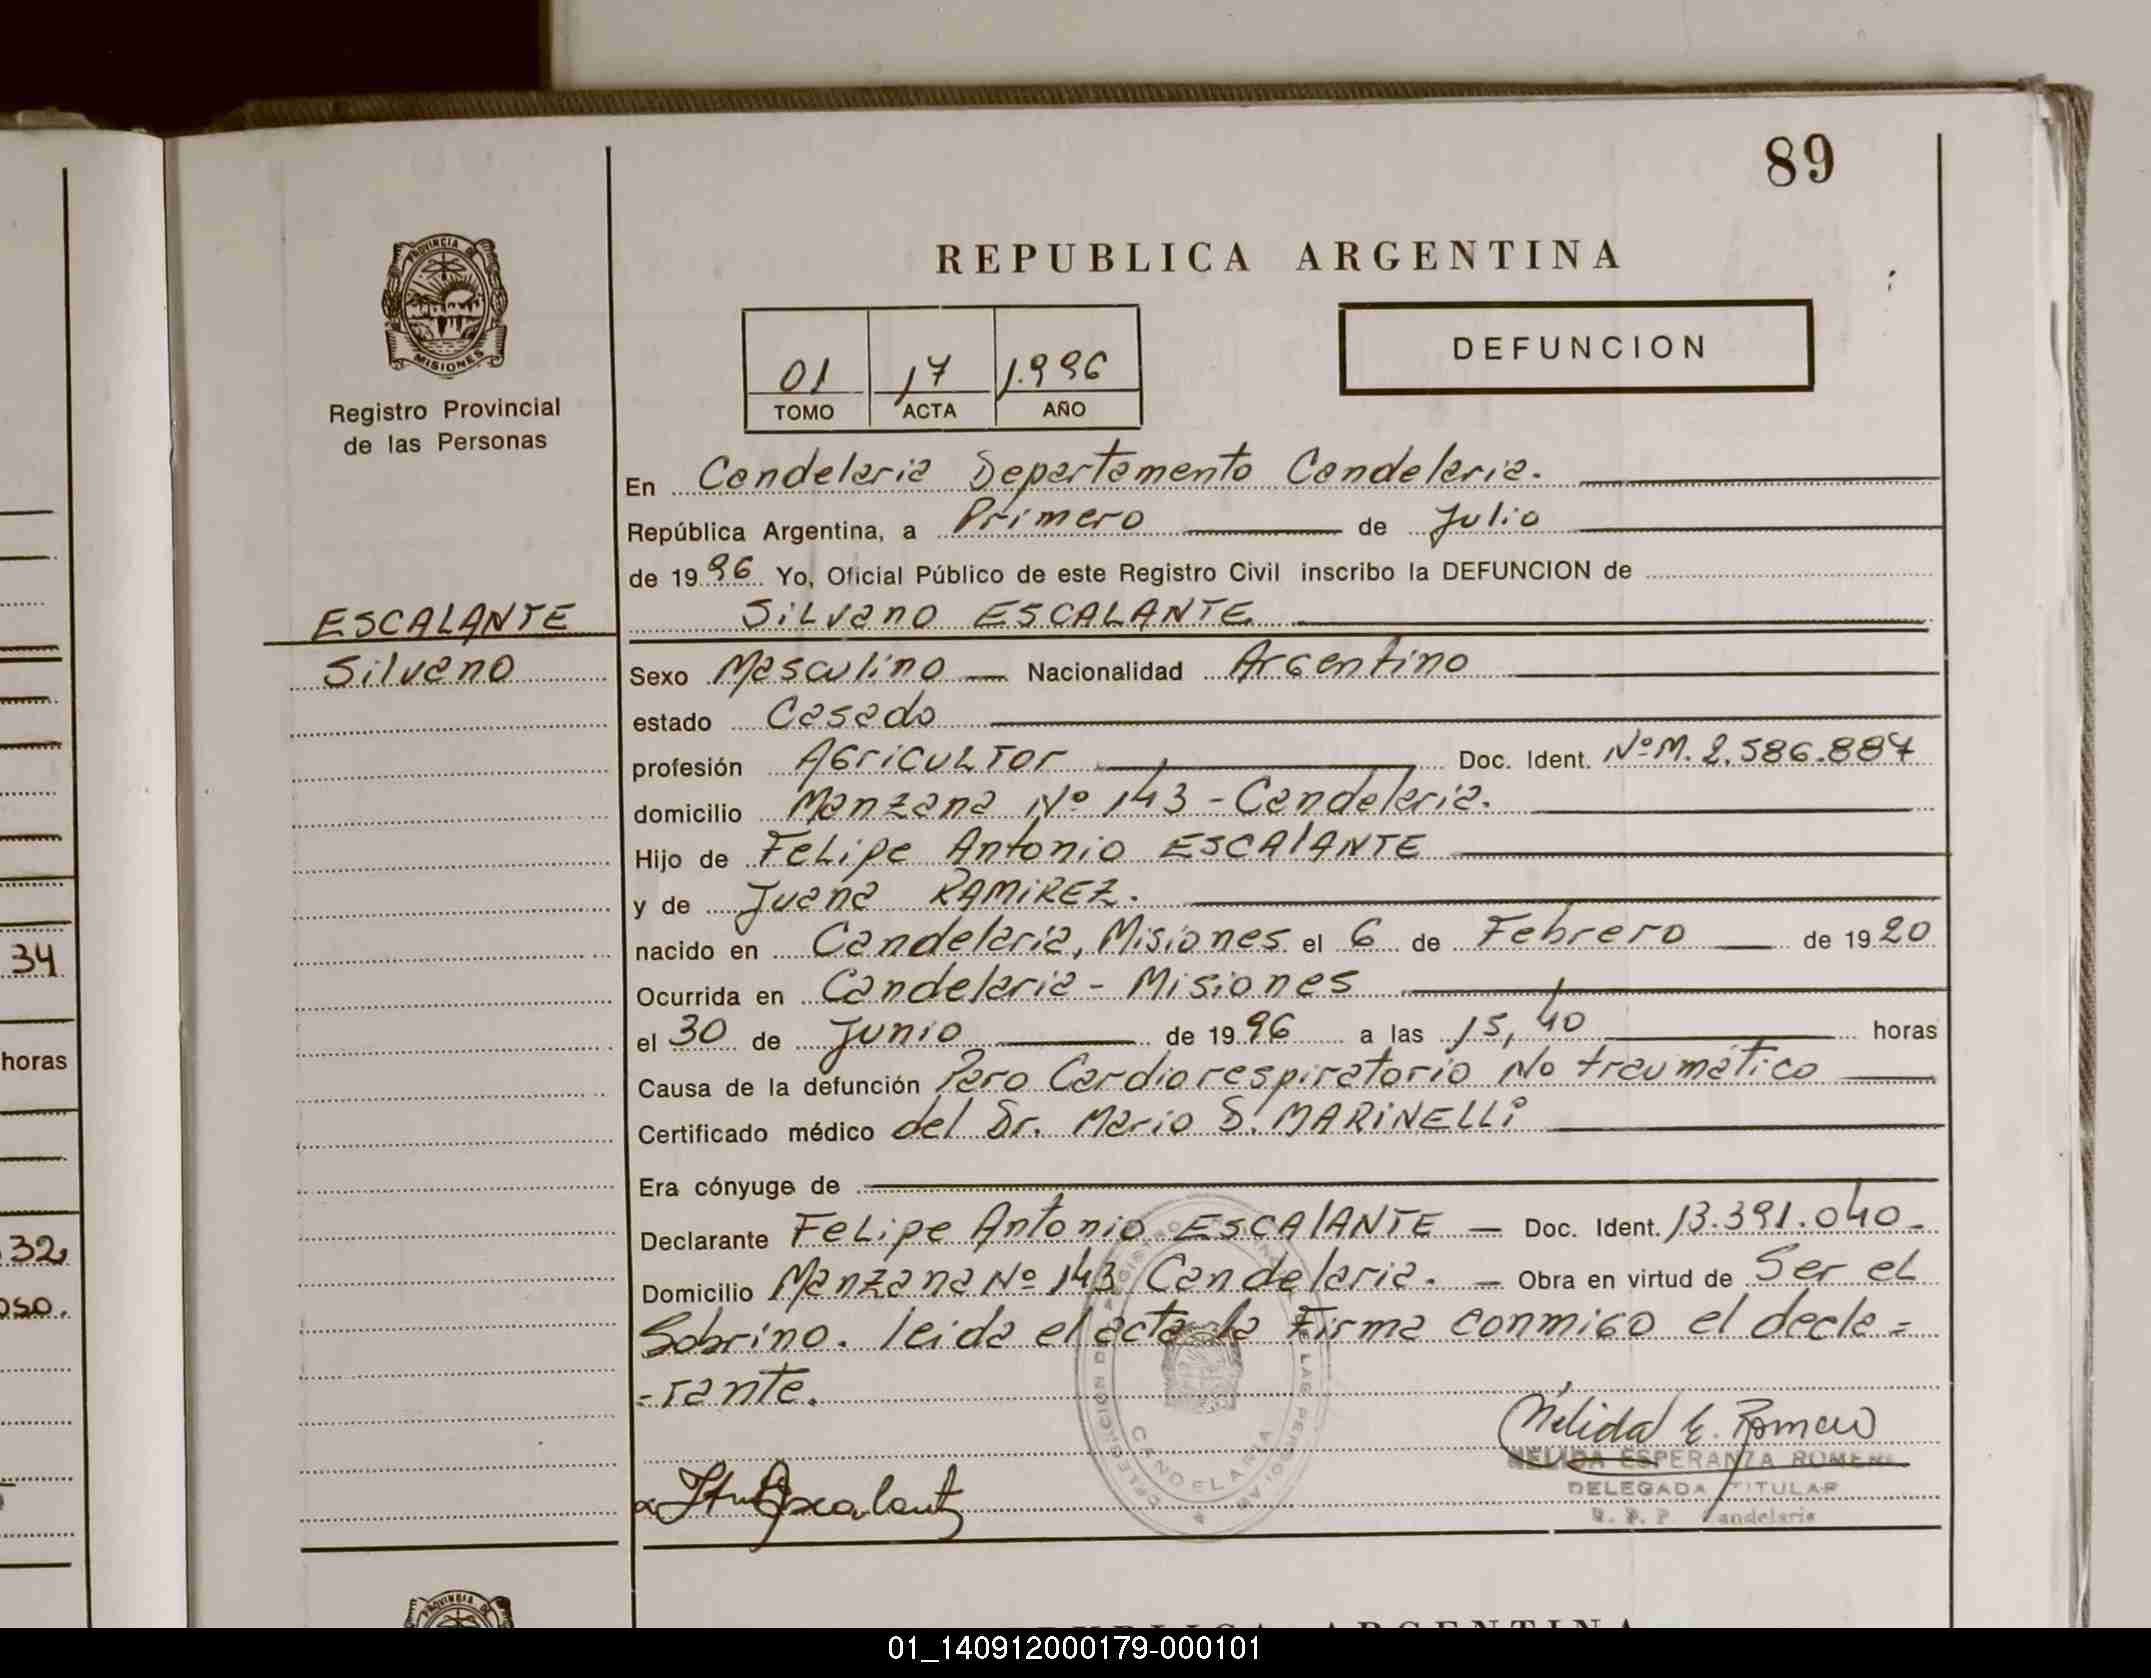 89
PROVINCIA DE
MISIONES
Registro Provincial
de las Personas
REPUBLICA ARGENTINA
01 17 1.996
TOMO ACTA AÑO
DEFUNCION
En Candelaria Departamento Candelaria.
República Argentina, a Primero de Julio
de 1996 Yo, Oficial Público de este Registro Civil inscribo la DEFUNCION de
ESCALANTE
Silvano
Silvano ESCALANTE
Sexo Masculino Nacionalidad Argentino
estado Casado
profesión Agricultor Doc. Ident. Nº M. 2.586.887
domicilio Manzana Nº 143 - Candelaria.
Hijo de Felipe Antonio ESCAlANTE
y de Juana RAMIREZ.
nacido en Candelaria, Misiones el 6 de Febrero de 1920
Ocurrida en Candelaria - Misiones
el 30 de Junio de 1996 a las 15,40 horas
Causa de la defunción Paro Cardiorespiratorio No traumático
Certificado médico del Dr. Mario D. MARINELLI
Era cónyuge de
Declarante Felipe Antonio ESCAlANTE - Doc. Ident. 13.391.040-
Domicilio Manzana Nº 143 Candelaria. - Obra en virtud de Ser el
Sobrino. leida el acta la Firma conmigo el decla=
=rante.
Nélida E. Romero
NELIDA ESPERANZA ROMERO
DELEGADA TITULAR
R. P. P Candelaria
CANDELARIA
34
horas
32
oso.
REPUBLICA ARGENTINA
01_140912000179-000101